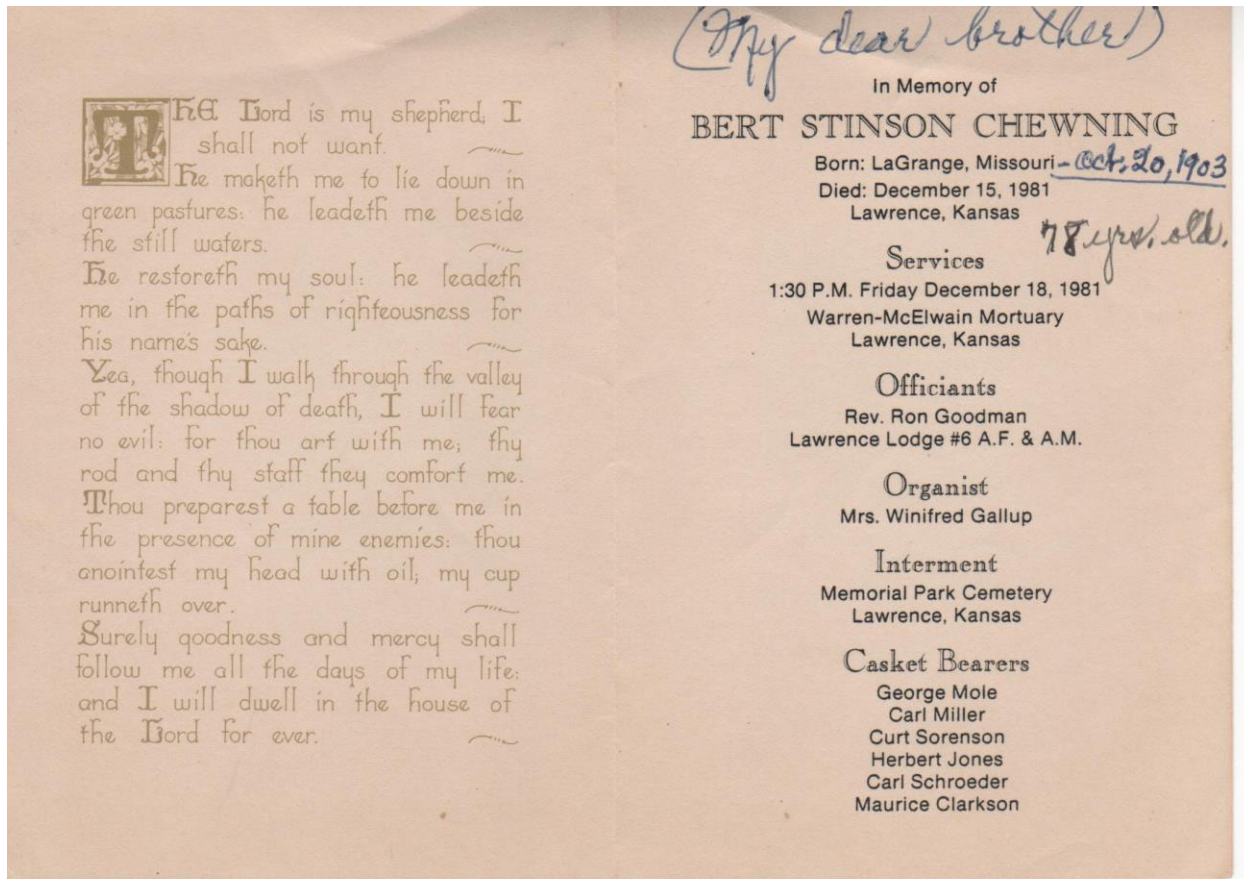 THE Lord is my shepherd; I
shall not want.
He maketh me to lie down in
green pastures: he leadeth me beside
the still waters.
He restoreth my soul: he leadeth
me in the paths of righteousness for
his name's sake.
Yea, though I walk through the valley
of the shadow of death, I will fear
no evil: for thou art with me; thy
rod and thy staff they comfort me.
Thou preparest a table before me in
the presence of mine enemies: thou
anointest my head with oil; my cup
runneth over.
Surely goodness and mercy shall
follow me all the days of my life:
and I will dwell in the house of
the Lord for ever.
(My dear brother)
In Memory of
BERT STINSON CHEWNING
Born: LaGrange, Missouri - Oct. 20, 1903
Died: December 15, 1981
Lawrence, Kansas
78 yrs. old.
Services
1:30 P.M. Friday December 18, 1981
Warren-McElwain Mortuary
Lawrence, Kansas
Officiants
Rev. Ron Goodman
Lawrence Lodge #6 A.F. & A.M.
Organist
Mrs. Winifred Gallup
Interment
Memorial Park Cemetery
Lawrence, Kansas
Casket Bearers
George Mole
Carl Miller
Curt Sorenson
Herbert Jones
Carl Schroeder
Maurice Clarkson